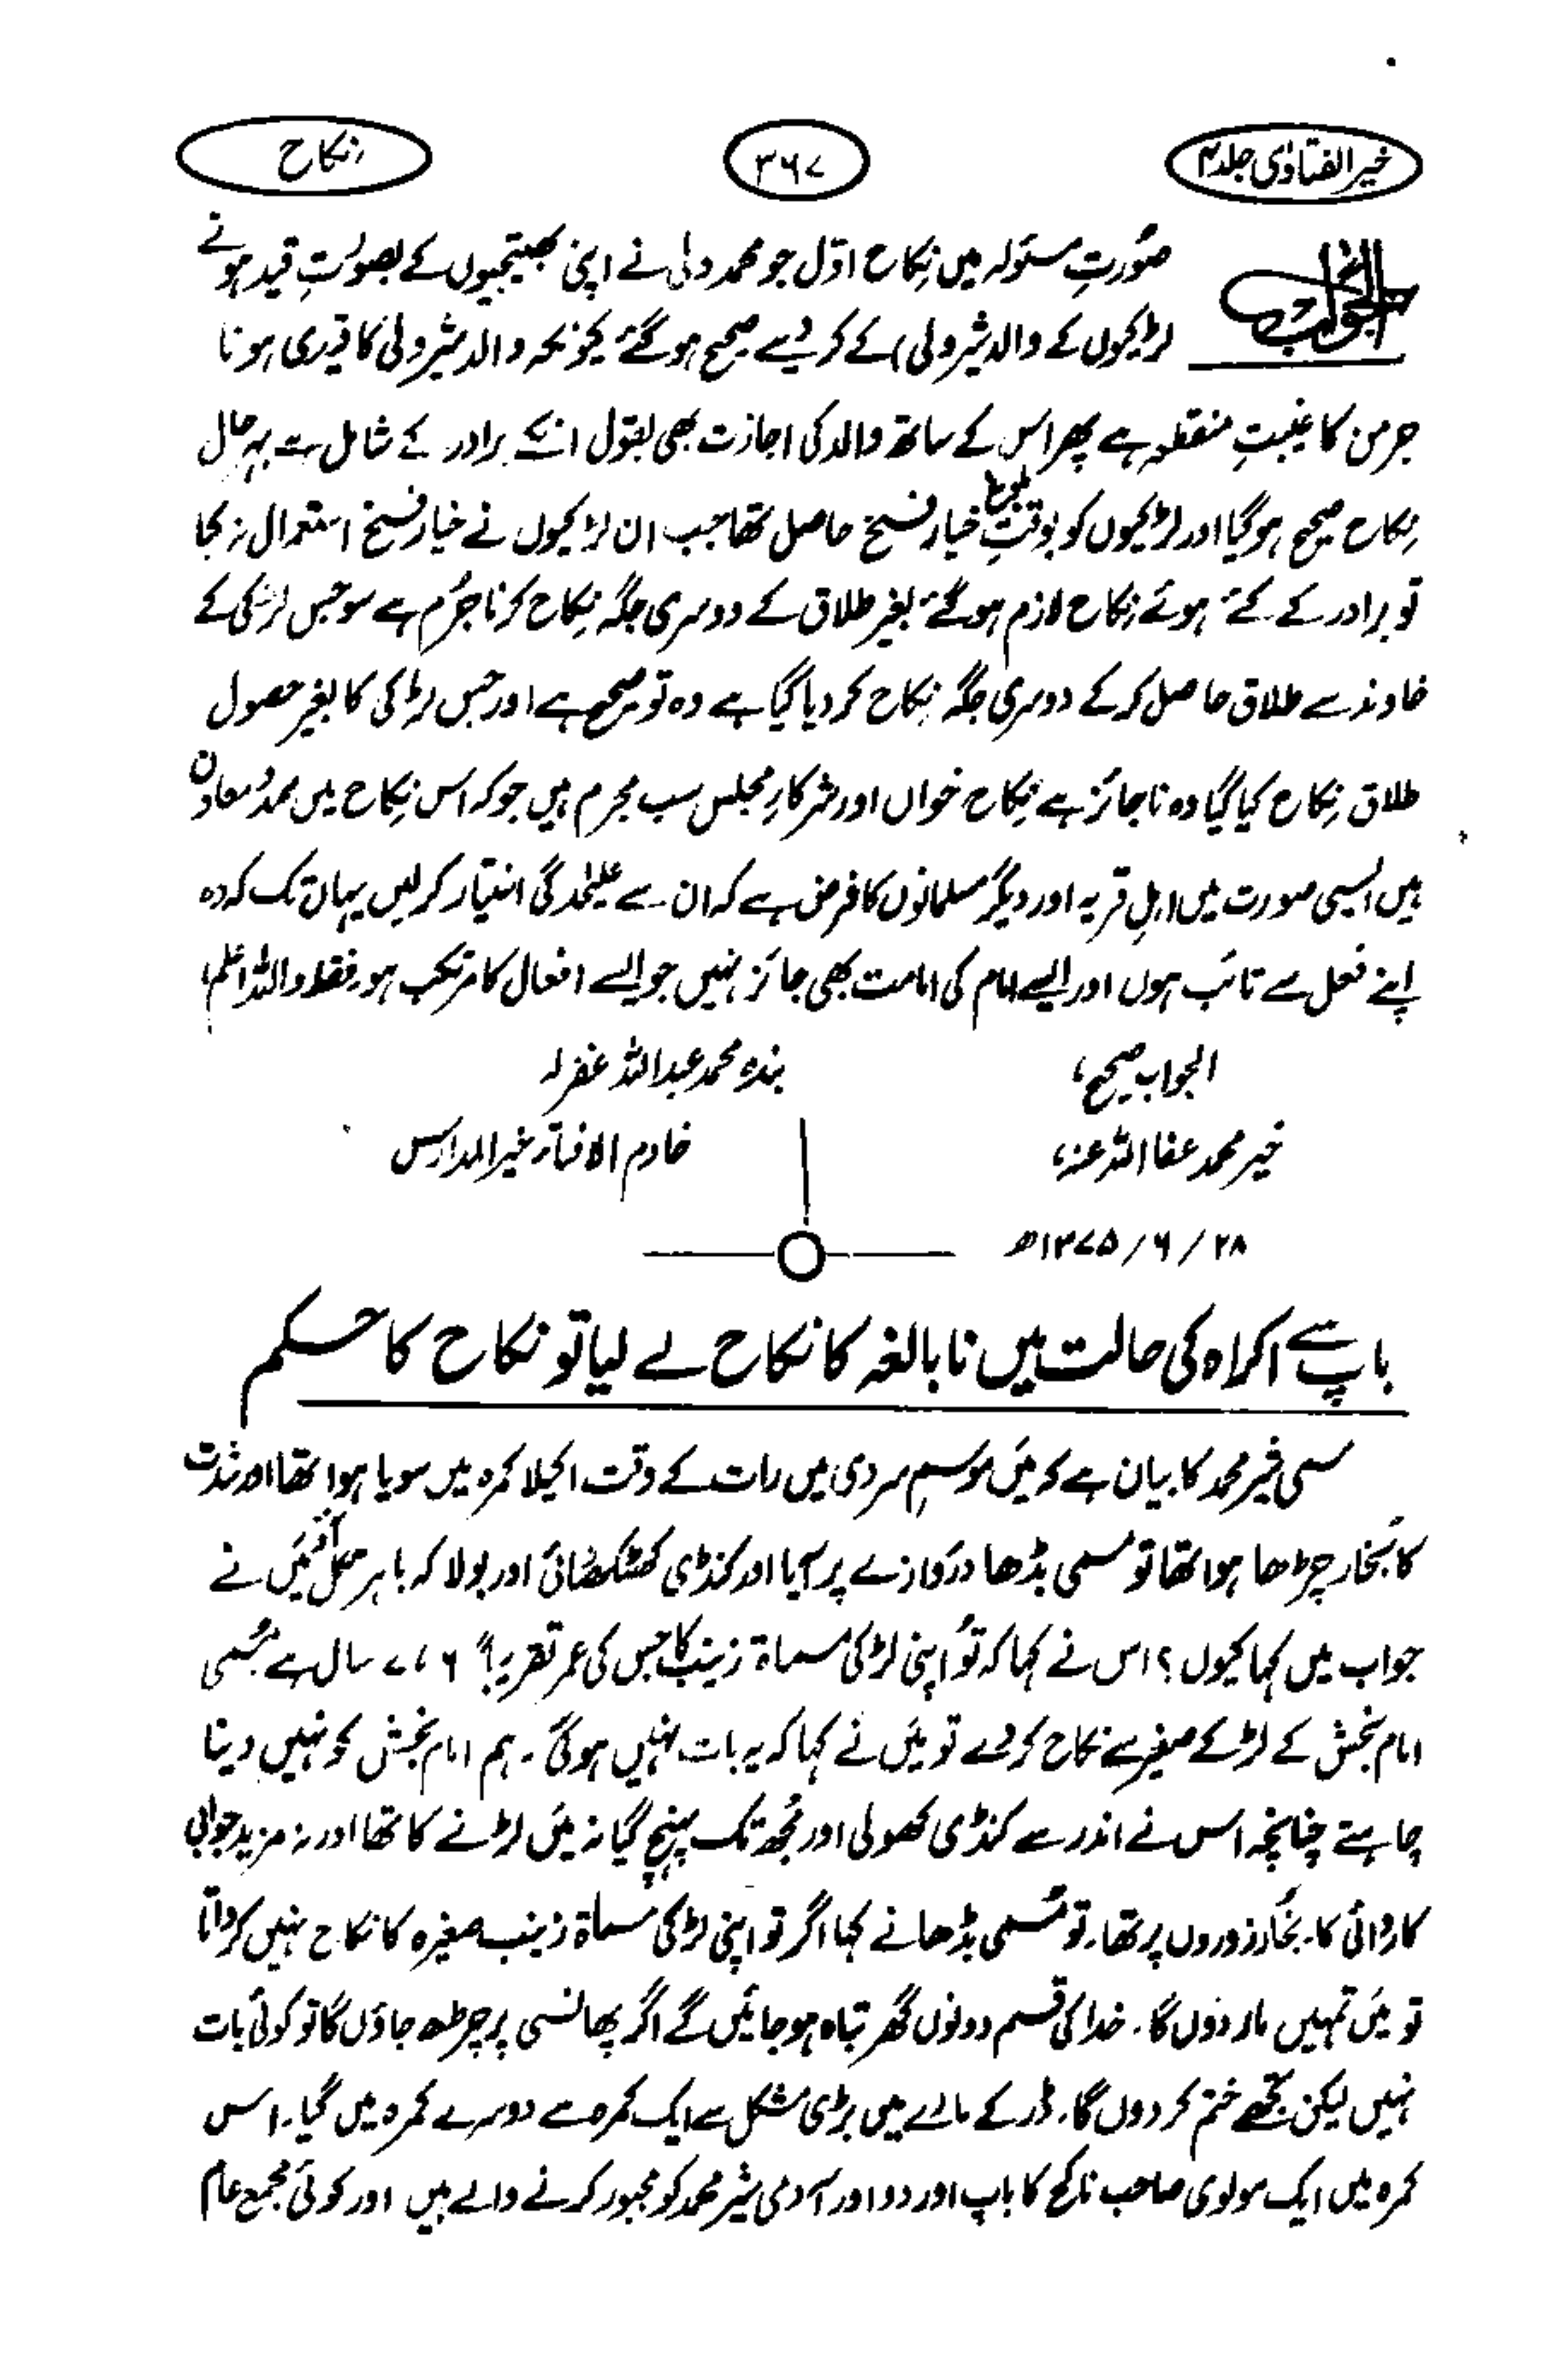 خیر الفتاوٰی جلد ۴
۳۶۷
نکاح
الجواب
صُورتِ مسئولہ میں نِکاح اوّل جو محمد ولی نے اپنی بھتیجیوں کے بصورتِ قید ہونے
لڑکیوں کے والد شیر ولی) کے کر دیے صحیح ہوگئے کیونکہ والد شیر ولی کا قیدی ہونا
جرمن کا غیبتِ منقطعہ ہے پھر اس کے ساتھ والد کی اجازت بھی بقول انکے برادر کے شامل ہے بہرحال
نِکاح صحیح ہوگیا اور لڑکیوں کو بوقتِ بلوغ خیارِ فسخ حاصل تھا جب ان لڑکیوں نے خیارِ فسخ استعمال نہ کیا
تو برادر کے کئے ہوئے نِکاح لازم ہوگئے بغیر طلاق کے دوسری جگہ نِکاح کرنا جرُم ہے سو جس لڑکی کے
خاوند سے طلاق حاصل کر کے دوسری جگہ نِکاح کر دیا گیا ہے وہ تو صحیح ہے اور جس لڑکی کا بغیر حصول
طلاق نِکاح کیا گیا وہ ناجائز ہے نِکاح خواں اور شرکارِ مجلس سب مجرم ہیں جو کہ اس نِکاح میں ممد و معاون
ہیں ایسی صورت میں اہلِ قریہ اور دیگر مسلمانوں کا فرض ہے کہ ان سے علیٰحدگی اختیار کر لیں یہاں تک کہ وہ
اپنے فعل سے تائب ہوں اور ایسے امام کی امامت بھی جائز نہیں جو ایسے افعال کا مرتکب ہو۔ فقط واللہ اعلم
الجواب صحیح،
بندہ محمد عبد اللہ غفرلہ
خیر محمد عفا اللہ عنہ،
خادم الافتاء خیر المدارس
۲۸ / ۶ / ۱۳۷۵ھ
باپ سے اکراہ کی حالت میں نابالغہ کا نکاح لے لیا تو نکاح کا حکم
مسمی شیر محمد کا بیان ہے کہ میَں موسمِ سردی میں رات کے وقت اکیلا کمرہ میں سویا ہوا تھا اور شدت
کا بُخار چڑھا ہوا تھا تو مسمی بڈھا دروازے پر آیا اور کنڈی کھٹکھٹائی اور بولا کہ باہر نکل آؤ میَں نے
جواب میں کہا کیوں؟ اس نے کہا کہ توُ اپنی لڑکی مسماۃ زینب کا جس کی عمر تقریباً ۶، ۷ سال ہے مُسمی
امام بخش کے لڑکے صغیر سے نکاح کر دے تو میَں نے کہا کہ یہ بات نہیں ہوگی۔ ہم امام بخش کو نہیں دینا
چاہتے چنانچہ اس نے اندر سے کنڈی کھولی اور مُجھ تک پہنچ گیا نہ میَں لڑنے کا تھا اور نہ مزید جوابی
کاروائی کا۔ بخُار زوروں پر تھا۔ تو مُسمی بڈھا نے کہا اگر تو اپنی لڑکی مسماۃ زینب صغیرہ کا نکاح نہیں کرواتا
تو میَں تمہیں مار دوں گا۔ خدا کی قسم دونوں گھر تباہ ہوجائیں گے اگر پھانسی پر چڑھ جاؤں گا تو کوئی بات
نہیں لیکن تجھے ختم کر دوں گا۔ ڈر کے مارے میں بڑی مشکل سے ایک کمرہ سے دوسرے کمرہ میں گیا۔ اس
کمرہ میں ایک مولوی صاحب ناکح کا باپ اور دو اور آدمی شیر محمد کو مجبور کرنے والے ہیں اور کوئی مجمع عام